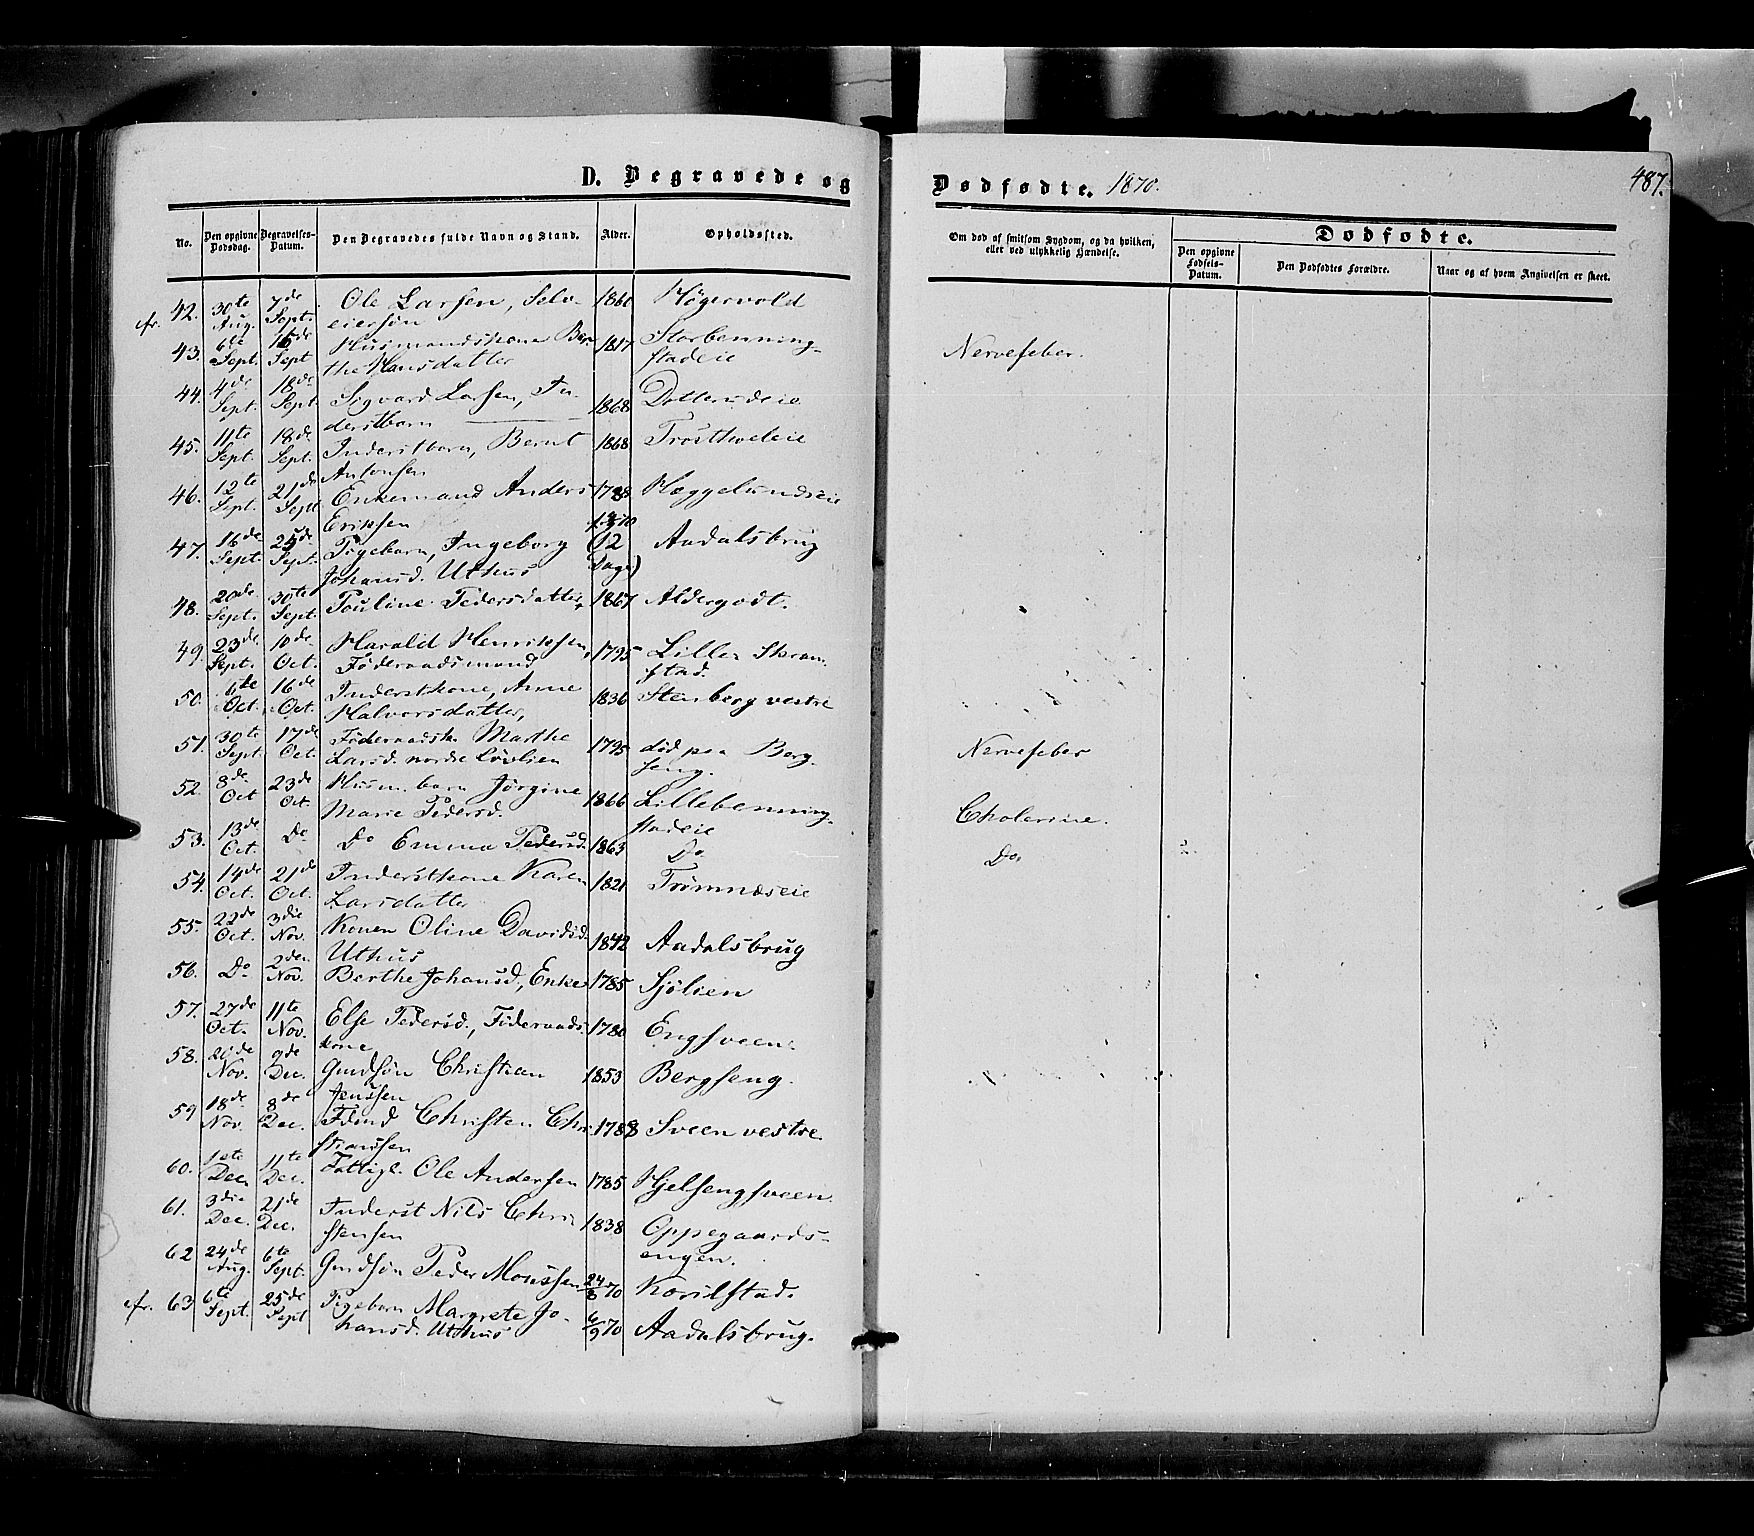 D. Begravede og Dødfødte. 1870. 487.
No. Den opgivne Dødsdag. Begravelses-Datum. Den Begravedes fulde Navn og Stand. Alder. Opholdssted. Om død af smitsom Sygdom, og da hvilken, eller ved ulykkelig Hændelse. Dødfødte.
Den opgivne Fødsels-Datum. Den Dødfødtes Forældre. Naar og af hvem Angivelsen er skeet.
42. 30te Aug. 7de Sept. Ole Larsen, Selv- 1860 Høgervold
cfr. eiersøn
43. 6te Sept. 16de Sept Husmandskone Ber- 1817 Storbenning- Nervefeber.
the Hansdatter stadeie
44. 4de Sept. 18de Sept. Sigvard Larsen, In- 1868 Dotterudeie
derstbarn
45. 11te Sept. 18de Sept. Inderstbarn, Bernt 1868 Trosthveleie
Antonsen
46. 12te Sept. 21de Sept Enkemand Anders 1788 Hæggelundseie
Eriksen
47. 16de Sept. 25de Sept. Pigebarn, Ingeborg (12 Aadalsbrug
Johansd. Uthus Dage)
48. 20de Sept. 30te Sept. Pouline Pedersdatter, 1867 Aldergodt.
49. 23de Sept. 10de Oct. Harald Henriksen, 1795 Lille Skram-
Føderaadsmand stad.
50. 6te Oct. 16de Oct. Inderstkone, Anne 1836 Stenberg vestre
Halvorsdatter,
51. 30te Sept. 17de Oct. Føderaadsk. Marthe 1795 død paa Berg- Nervefeber
Larsd. nordre Løvlien seng.
52. 8de Oct 23de Oct. Husm. barn Jørgine 1866 Lillebenning- Cholerine.
Marie Pedersd. stadeie
53. 13de Oct. Do Do Emma Pedersd. 1863 Do Do
54. 14de Oct. 21de Oct. Inderstkone Karen 1821 Trømnæseie
Larsdatter
55. 22de Oct. 3die Nov. Konen Oline Davidsd. 1842 Aadalsbrug
Uthus
56. Do 2den Nov. Berthe Johansd, Enke 1785 Sjølien
57. 27de Oct. 11te Nov. Else Pedersd., Føderaads- 1780 Engsveen.
kone
58. 20de Nov. 9de Dec. Gmdsøn Christian 1853 Bergseng.
Jenssen
59 18de Nov. 8de Dec. Fdmd Christen Chri- 1788 Sveen vestre.
stianssen
60. 1ste Dec 11te Dec. Fattigl. Ole Andersen 1785 Hjelsengsveen.
61. 3die Dec. 21de Dec. Inderst Nils Chri- 1838 Oppegaards-
stensen engen.
62 24de Aug. 6te Sept. Gmdsøn Peder Monssen 24/8 70 Korilstad.
cfr. 63 6te Sept. 25de Sept Pigebarn Margrete Jo- 6/9 70 Aadalsbrug.
hansd. Uthus